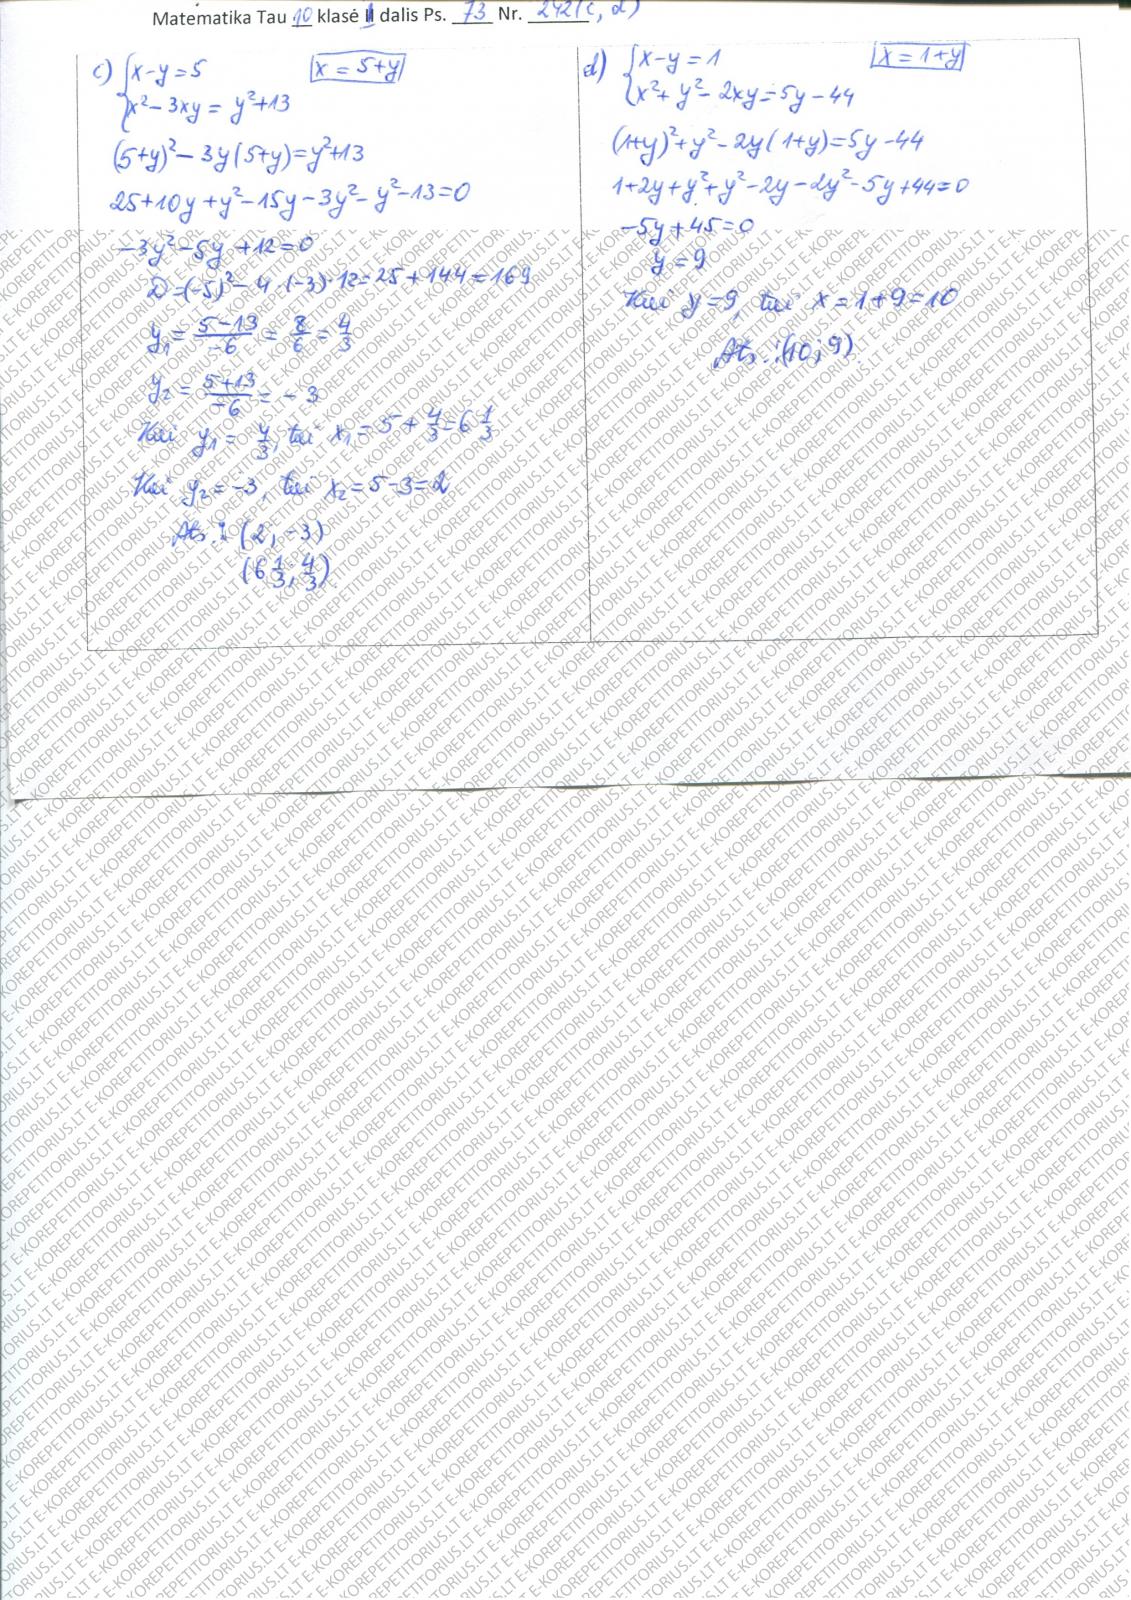 Matematika Tau 10 klasė II dalis Ps. 73 Nr. 242(c, d)
c) { x-y=5
x=5+y
x²-3xy=y²+13
(5+y)²-3y(5+y)=y²+13
25+10y+y²-15y-3y²-y²-13=0
-3y²-5y+12=0
D=(-5)²-4·(-3)·12=25+144=169
y₁=(5-13)/-6=8/6=4/3
y₂=(5+13)/-6=-3
Kai y₁=4/3, tai x₁=5+4/3=6 1/3
Kai y₂=-3, tai x₂=5-3=2
Ats.: (2; -3)
(6 1/3; 4/3)
d) { x-y=1
x=1+y
x²+y²-2xy=5y-44
(1+y)²+y²-2y(1+y)=5y-44
1+2y+y²+y²-2y-2y²-5y+44=0
-5y+45=0
y=9
Kai y=9, tai x=1+9=10
Ats.: (10; 9)
E-KOREPETITORIUS.LT